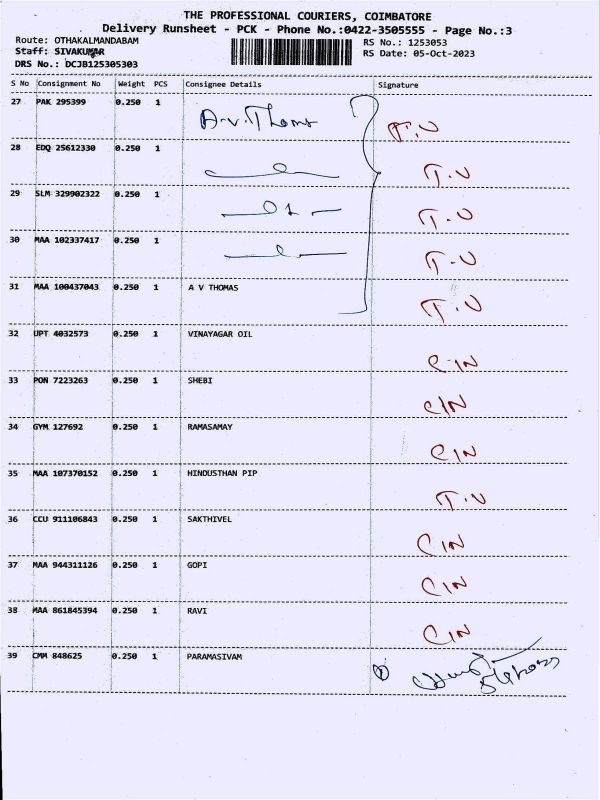 THE PROFESSIONAL COURIERS, COIMBATORE
Delivery Runsheet - PCK - Phone No.:0422-3505555 - Page No.:3
Route: OTHAKALMANDABAM
RS No.: 1253053
Staff: SIVAKUMAR
RS Date: 05-Oct-2023
DRS No.: DCJB125305303
S No Consignment No Weight PCS Consignee Details Signature
27 PAK 295399 0.250 1 A.v.Thoms T.U
28 EDQ 25612330 0.250 1 T.U
29 SLM 329902322 0.250 1 T.U
30 MAA 102337417 0.250 1 T.U
31 MAA 100437043 0.250 1 A V THOMAS T.U
32 UPT 4032573 0.250 1 VINAYAGAR OIL CIN
33 PON 7223263 0.250 1 SHEBI CIN
34 GYM 127692 0.250 1 RAMASAMAY CIN
35 MAA 107370152 0.250 1 HINDUSTHAN PIP T.U
36 CCU 911106843 0.250 1 SAKTHIVEL CIN
37 MAA 944311126 0.250 1 GOPI CIN
38 MAA 861845394 0.250 1 RAVI CIN
39 CMM 848625 0.250 1 PARAMASIVAM